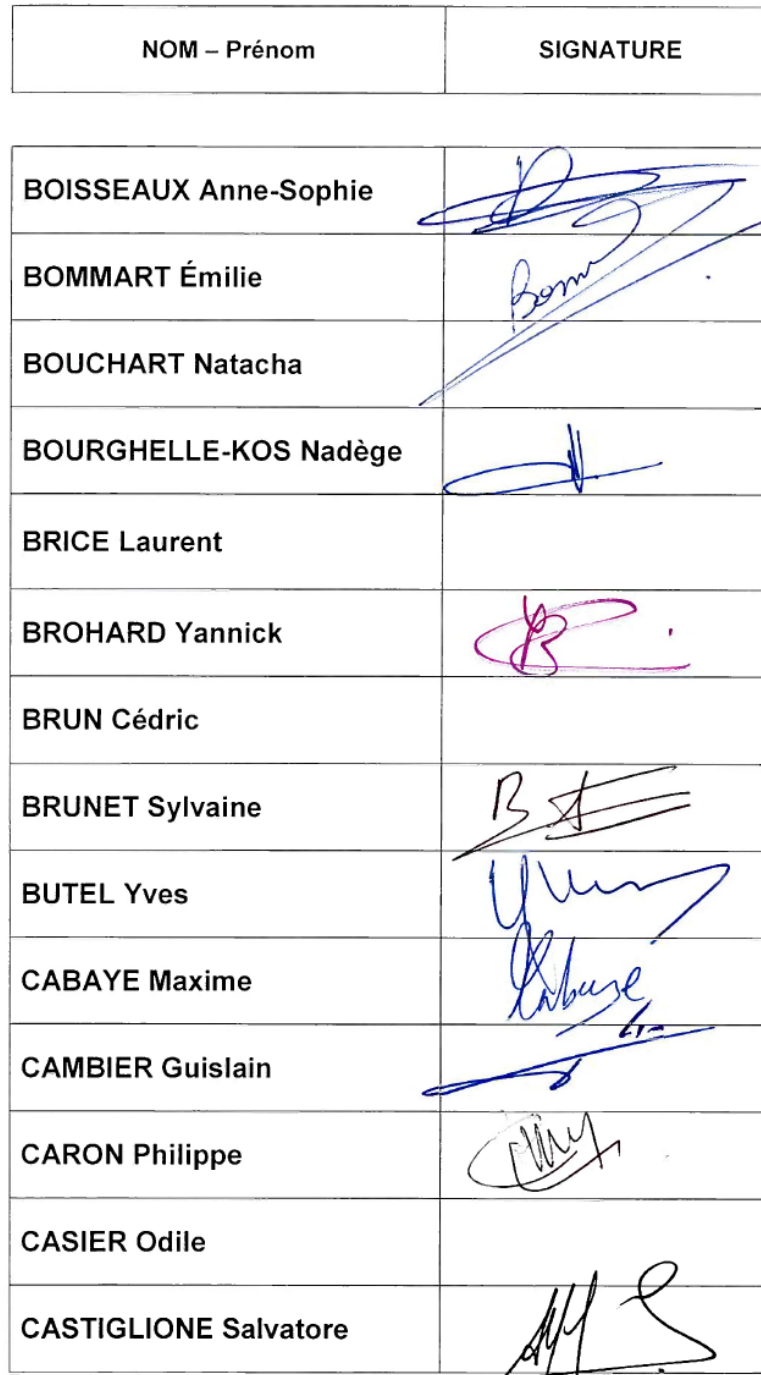 NOM – Prénom SIGNATURE
BOISSEAUX Anne-Sophie
BOMMART Émilie
BOUCHART Natacha
BOURGHELLE-KOS Nadège
BRICE Laurent
BROHARD Yannick
BRUN Cédric
BRUNET Sylvaine
BUTEL Yves
CABAYE Maxime
CAMBIER Guislain
CARON Philippe
CASIER Odile
CASTIGLIONE Salvatore